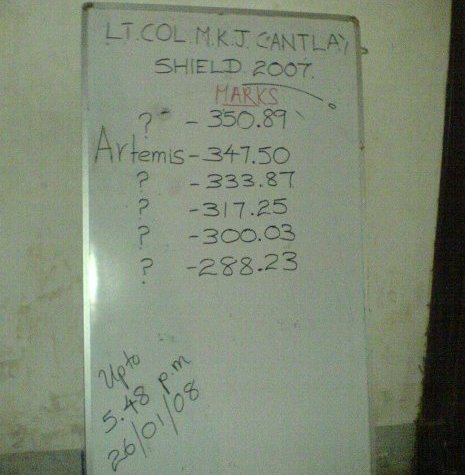 LT. COL M.K.J. CANTLAY
SHIELD 2007.
MARKS
? - 350.89
Artemis - 347.50
? - 333.87
? - 317.25
? - 300.03
? - 288.23
Upto
5.48 p.m
26/01/08